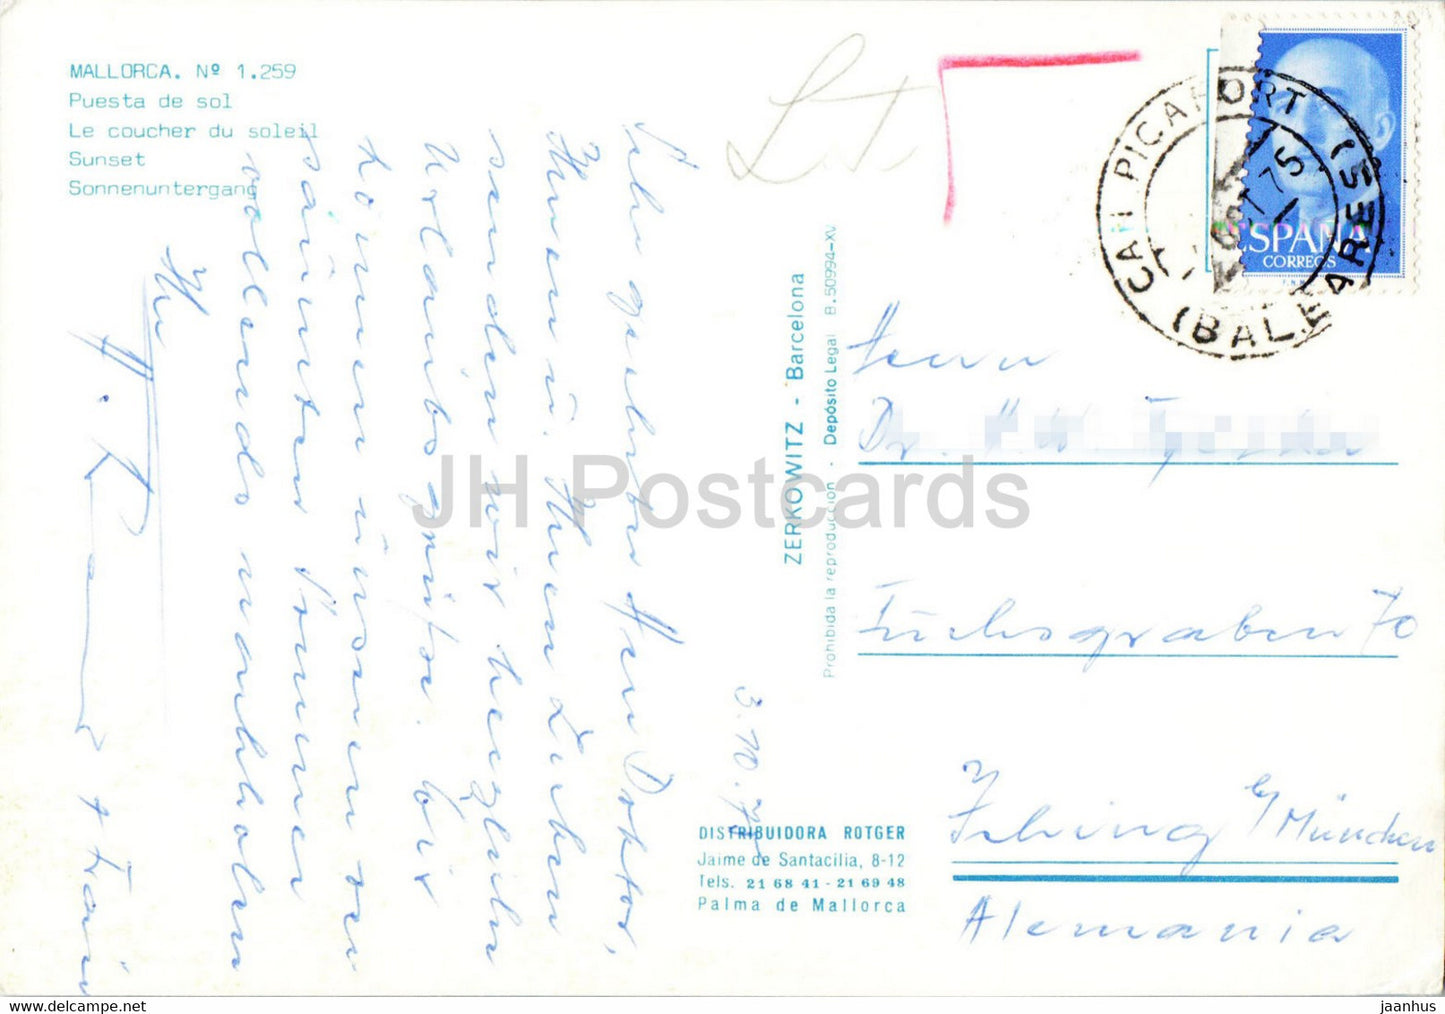 MALLORCA. Nº 1.259
Puesta de sol
Le coucher du soleil
Sunset
Sonnenuntergang
3.10.75
Sehr geehrter Herr Doktor,
Ihnen u. Ihren Lieben
senden wir herzliche
Urlaubsgrüße. Wir
können hier den
Sommer
nachholen
Ihr
H.
+ Frau
ZERKOWITZ - Barcelona
Prohibida la reproducción - Depósito Legal B. 50994-XV
DISTRIBUIDORA ROTGER
Jaime de Santacilia, 8-12
Tels. 21 68 41 - 21 69 48
Palma de Mallorca
CAN PICAFORT
(BALEARES)
OCT 75
ESPAÑA
CORREOS
F.N.M.T.
Herrn
Dr.
Fuchsgraben 70
b/München
Alemania
JH Postcards
jaanhus